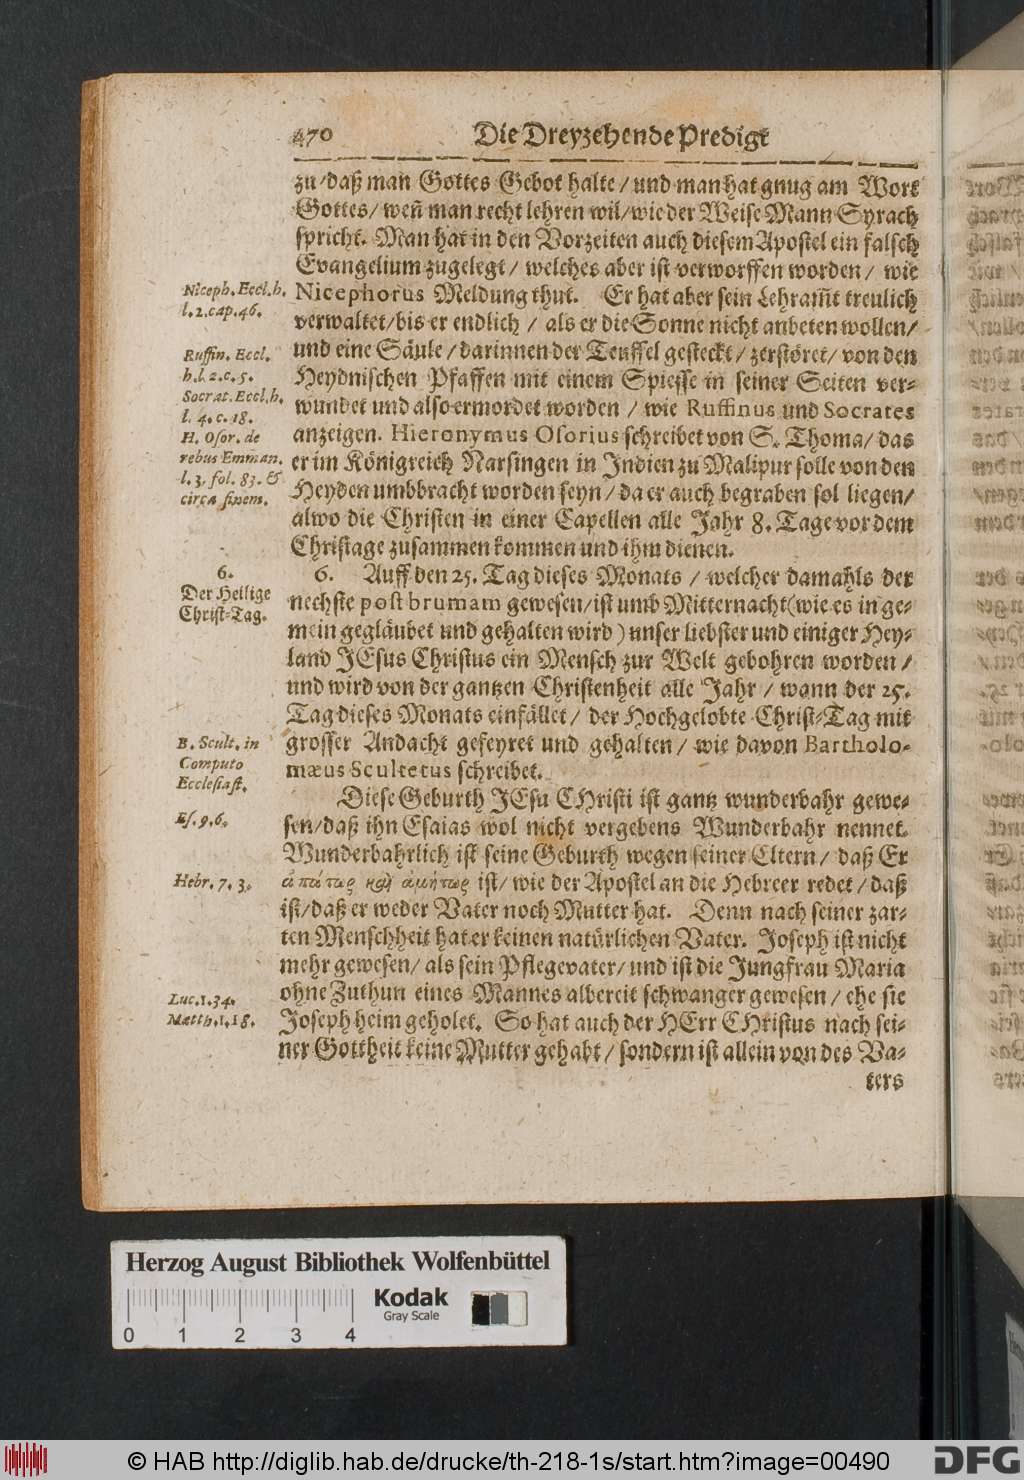 470 Die Dreyzehende Predigt
zu/daß man Gottes Gebot halte/und man hat gnug am Wort
Gottes/weñ man recht lehren wil/wie der Weise Mann Syrach
spricht. Man hat in den Vorzeiten auch diesem Apostel ein falsch
Evangelium zugelegt/welches aber ist verworffen worden/wie
Nicephorus Meldung thut. Er hat aber sein Lehram̃t treulich
verwaltet/bis er endlich/als er die Sonne nicht anbeten wollen/
und eine Säule/darinnen der Teuffel gesteckt/zerstöret/von den
Heydnischen Pfaffen mit einem Spiesse in seiner Seiten ver-
wundet und also ermordet worden/wie Ruffinus und Socrates
anzeigen. Hieronymus Osorius schreibet von S. Thoma/das
er im Königreich Narsingen in Indien zu Malipur solle von den
Heyden umbbracht worden seyn/da er auch begraben sol liegen/
alwo die Christen in einer Capellen alle Jahr 8. Tage vor dem
Christage zusammen kommen und ihm dienen.
6. Auff den 25. Tag dieses Monats/welcher damahls der
nechste post brumam gewesen/ist umb Mitternacht(wie es in ge-
mein gegläubet und gehalten wird) unser liebster und einiger Hey-
land JEsus Christus ein Mensch zur Welt gebohren worden/
und wird von der gantzen Christenheit alle Jahr/wann der 25.
Tag dieses Monats einfället/der Hochgelobte Christ-Tag mit
grosser Andacht gefeyret und gehalten/wie davon Bartholo-
mæus Scultetus schreibet.
Diese Geburth JEsu CHristi ist gantz wunderbahr gewe-
sen/daß ihn Esaias wol nicht vergebens Wunderbahr nennet.
Wunderbahrlich ist seine Geburth wegen seiner Eltern/daß Er
ἀπάτωρ καὶ ἀμήτωρ ist/wie der Apostel an die Hebreer redet/daß
ist/daß er weder Vater noch Mutter hat. Denn nach seiner zar-
ten Menschheit hat er keinen natürlichen Vater. Joseph ist nicht
mehr gewesen/als sein Pflegevater/und ist die Jungfrau Maria
ohne Zuthun eines Mannes albereit schwanger gewesen/ehe sie
Joseph heim geholet. So hat auch der HErr CHristus nach sei-
ner Gottheit keine Mutter gehabt/sondern ist allein von des Va-
ters
Niceph. Eccl. h.
l. 2. cap. 46.
Ruffin. Eccl.
h. l. 2. c. 5.
Socrat. Eccl. h.
l. 4. c. 18.
H. Osor. de
rebus Emman.
l. 3. fol. 83. &
circa finem.
6.
Der Heilige
Christ-Tag.
B. Scult. in
Computo
Ecclesiast.
Es. 9, 6.
Hebr. 7. 3.
Luc. 1. 34.
Matth. 1. 18.
Herzog August Bibliothek Wolfenbüttel
Kodak
Gray Scale
0 1 2 3 4
© HAB http://diglib.hab.de/drucke/th-218-1s/start.htm?image=00490
DFG